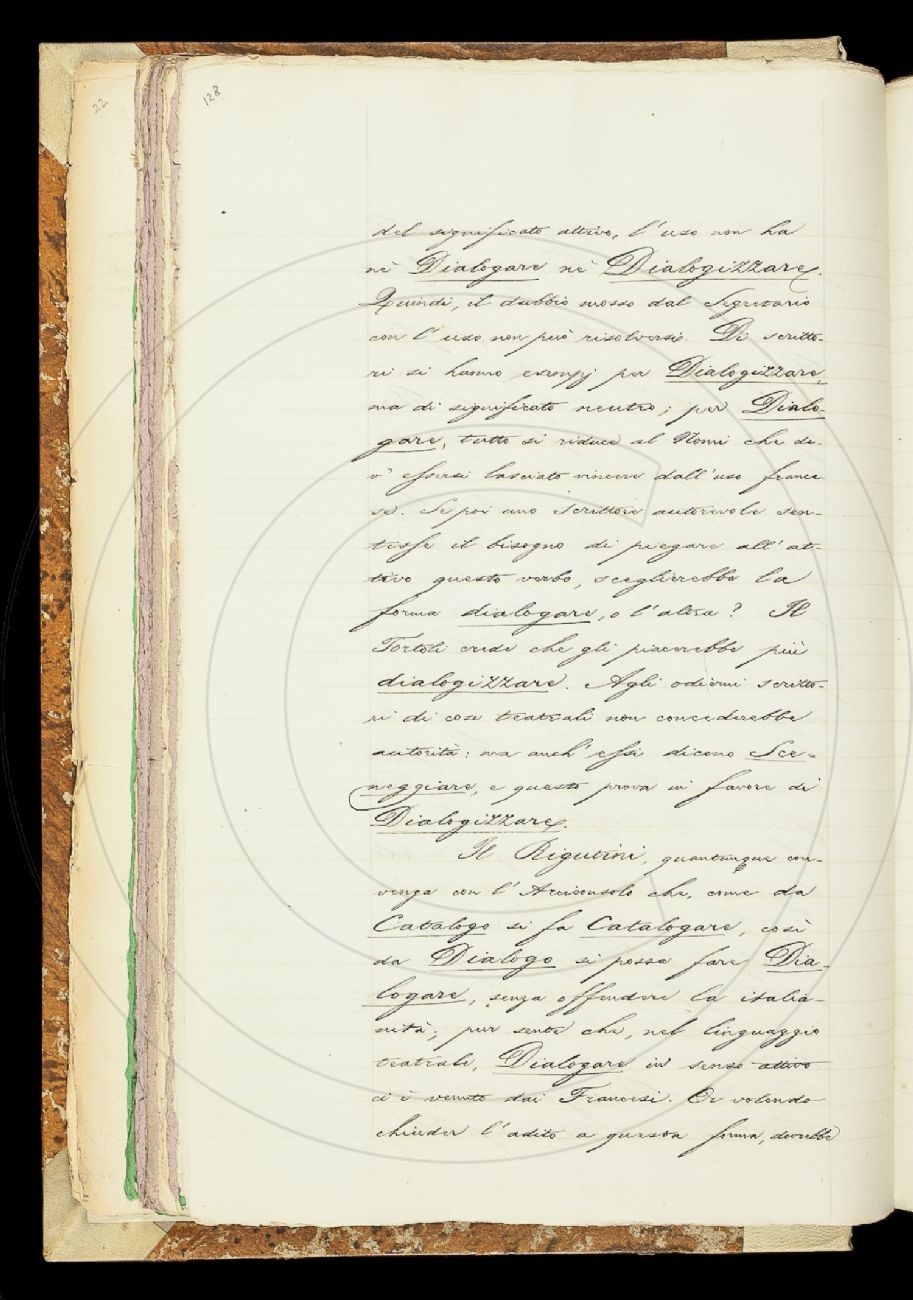 22
128
del significato attivo, l'uso non ha
nè Dialogare nè Dialogizzare.
Quindi, il dubbio mosso dal Segretario
con l'uso non può risolversi. Di scritto-
ri si hanno esempj per Dialogizzare,
ma di significato neutro; per Dialo-
gare, tutto si riduce al Nomi che de-
v'essersi lasciato vincere dall'uso france-
se. Se poi uno Scrittore autorevole sen-
tisse il bisogno di piegare all'at-
tivo questo verbo, sceglierebbe la
forma dialogare, o l'altra? Il
Tortoli crede che gli piacerebbe più
dialogizzare. Agli odierni scritto-
ri di cose teatrali non concederebbe
autorità: ma anch'essi dicono Sce-
neggiare, e questo prova in favore di
Dialogizzare.
Il Rigutini, quantunque con-
venga con l'Arciconsolo che, come da
Catalogo si fa Catalogare, così
da Dialogo si possa fare Dia-
logare, senza offendere la italia-
nità; pur sente che, nel linguaggio
teatrale, Dialogare in senso attivo
ci è venuto dai Francesi. Or volendo
chiuder l'adito a questa forma, dovrebbe